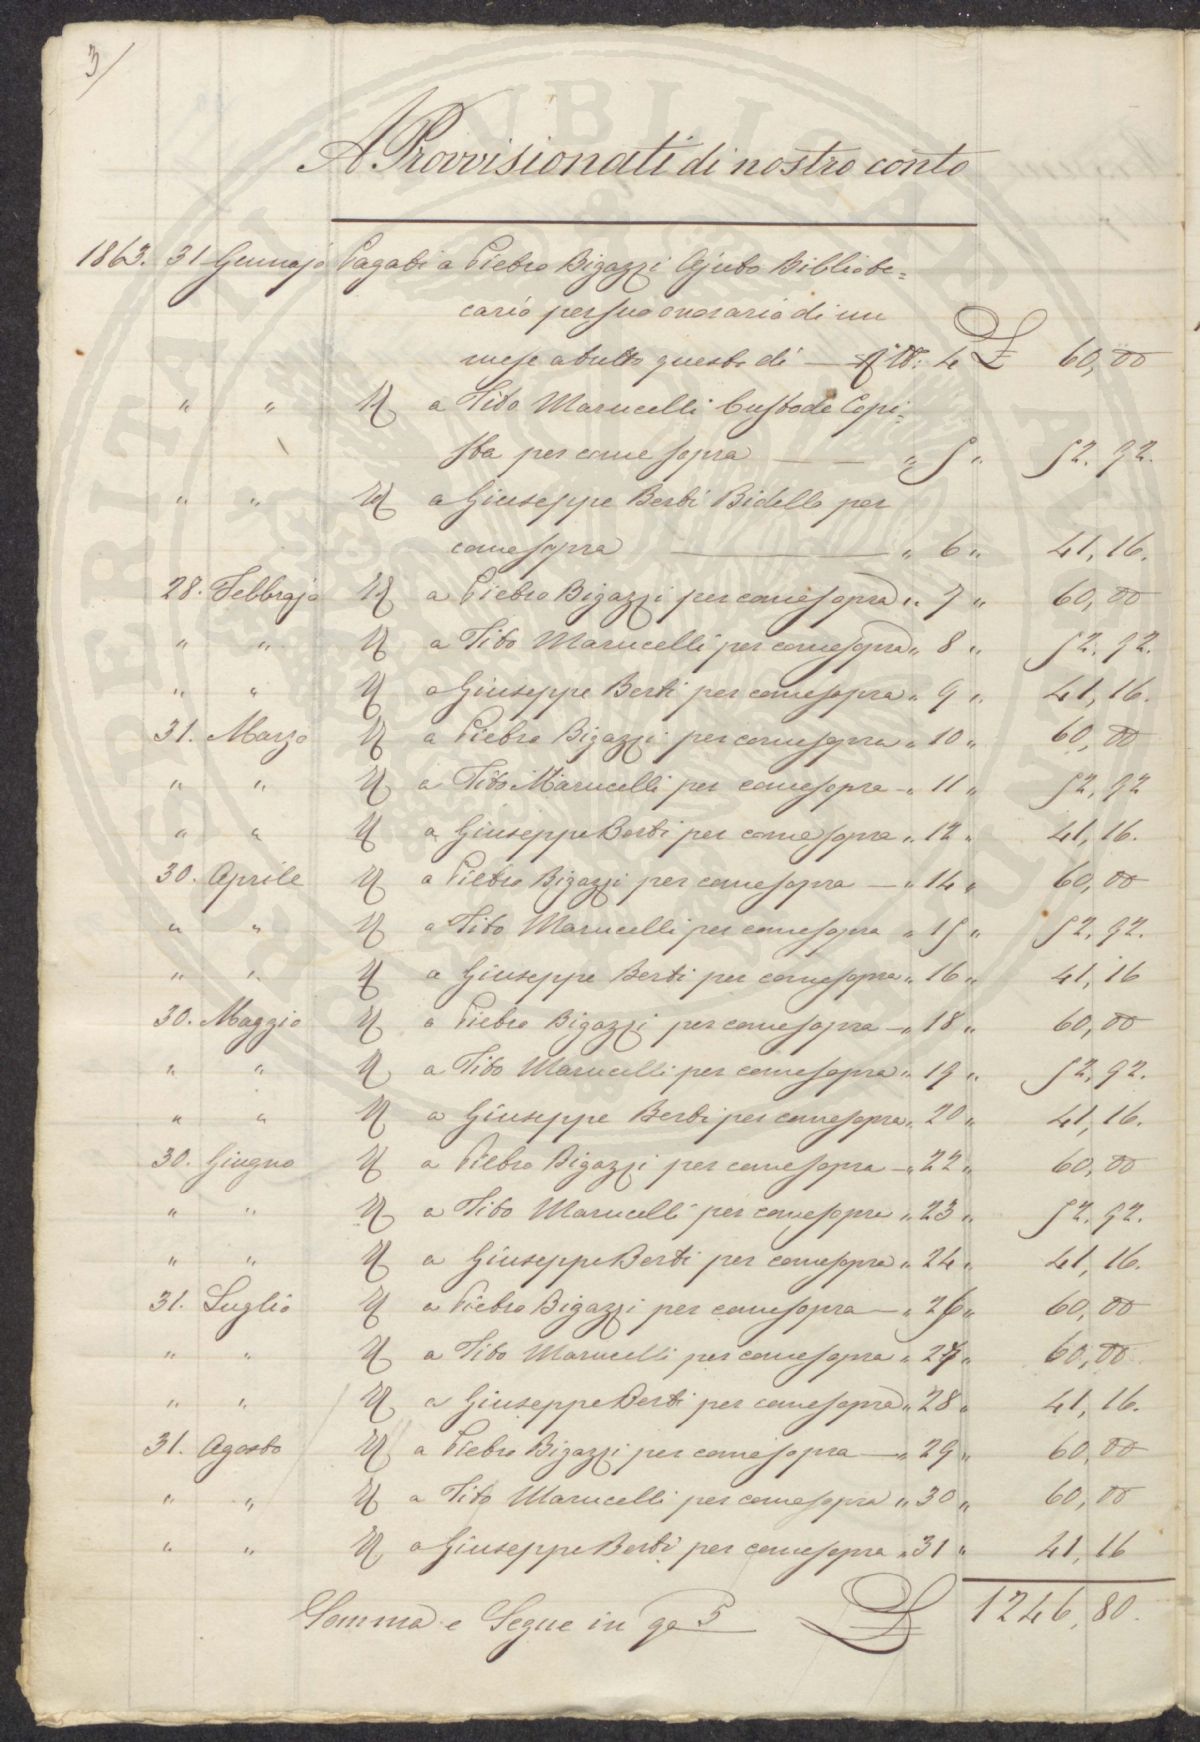 3/
A Provvisionati di nostro conto
1863. 31 Gennajo Pagati a Pietro Bigazzi Ajuto Bibliote=
cario per suo onorario di un
mese a tutto questo dì — 4 £ 60,00
" " a Tito Marucelli Custode Copi=
sta per come sopra — — " 5 " 52.92.
" " a Giuseppe Berti Bidello per
come sopra — " 6 " 41,16.
28. Febbrajo a Pietro Bigazzi per come sopra " 7 " 60,00
" " a Tito Marucelli per come sopra " 8 " 52.92.
" " a Giuseppe Berti per come sopra " 9 " 41,16.
31. Marzo a Pietro Bigazzi per come sopra " 10 " 60,00
" " a Tito Marucelli per come sopra — " 11 " 52,92
" " a Giuseppe Berti per come sopra " 12 " 41,16.
30. Aprile a Pietro Bigazzi per come sopra — " 14 " 60,00
" " a Tito Marucelli per come sopra " 15 " 52,92.
" " a Giuseppe Berti per come sopra " 16 " 41,16
30. Maggio a Pietro Bigazzi per come sopra — " 18 " 60,00
" " a Tito Marucelli per come sopra " 19 " 52,92.
" " a Giuseppe Berti per come sopra " 20 " 41,16.
30. Giugno a Pietro Bigazzi per come sopra — " 22 " 60,00
" " a Tito Marucelli per come sopra " 23 " 52.92.
" " a Giuseppe Berti per come sopra " 24 " 41,16.
31. Luglio a Pietro Bigazzi per come sopra — " 26 " 60,00
" " a Tito Marucelli per come sopra " 27 " 60,00
" " a Giuseppe Berti per come sopra " 28 " 41,16.
31. Agosto a Pietro Bigazzi per come sopra — " 29 " 60,00
" " a Tito Marucelli per come sopra " 30 " 60,00
" " a Giuseppe Berti per come sopra " 31 " 41,16
Somma e Segue in 5 £ 1246,80.